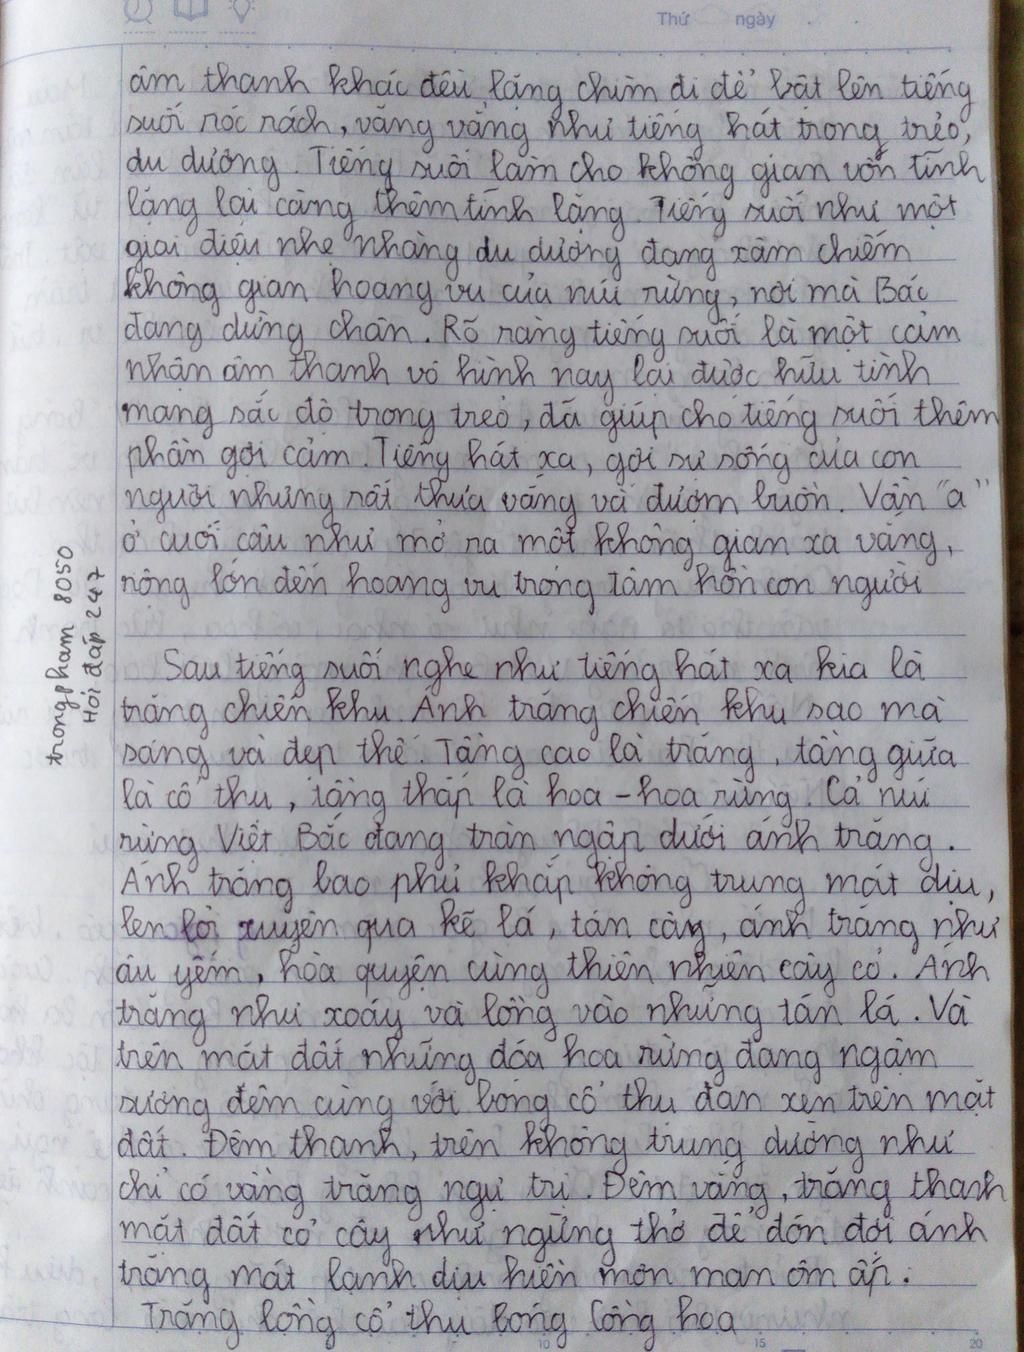 Thứ ngày
âm thanh khác đều lắng chìm đi để bật lên tiếng
suối róc rách, văng vẳng như tiếng hát trong trẻo,
du dương. Tiếng suối làm cho không gian vốn tĩnh
lặng lại càng thêm tĩnh lặng. Tiếng suối như một
giai điệu nhẹ nhàng du dương đang xâm chiếm
không gian hoang vu của núi rừng, nơi mà Bác
đang dừng chân. Rõ ràng tiếng suối là một cảm
nhận âm thanh vô hình nay lại được hữu tình
mang sắc độ trong trẻo, đã giúp cho tiếng suối thêm
phần gợi cảm. Tiếng hát xa, gợi sự sống của con
người nhưng rất thưa vắng và đượm buồn. Vần "a"
ở cuối câu như mở ra một không gian xa vắng,
rộng lớn đến hoang vu trong tâm hồn con người
Sau tiếng suối nghe như tiếng hát xa kia là
trăng chiến khu. Ánh trăng chiến khu sao mà
sáng và đẹp thế. Tầng cao là trăng, tầng giữa
là cổ thụ, tầng thấp là hoa - hoa rừng. Cả núi
rừng Việt Bắc đang tràn ngập dưới ánh trăng.
Ánh trăng bao phủ khắp không trung mát dịu,
len lỏi xuyên qua kẽ lá, tán cây, ánh trăng như
âu yếm, hòa quyện cùng thiên nhiên cây cỏ. Ánh
trăng như xoáy và lồng vào những tán lá. Và
trên mát đất những đóa hoa rừng đang ngậm
sương đêm cùng với bóng cổ thụ đan xen trên mặt
đất. Đêm thanh, trên không trung dường như
chỉ có vầng trăng ngự trị. Đêm vắng, trăng thanh
mặt đất cỏ cây như ngừng thở để đón đợi ánh
trăng mát lạnh dịu hiền mơn man ôm ấp.
Trăng lồng cổ thụ bóng lồng hoa
trongpham 8050
Hỏi đáp 247
10 15 20